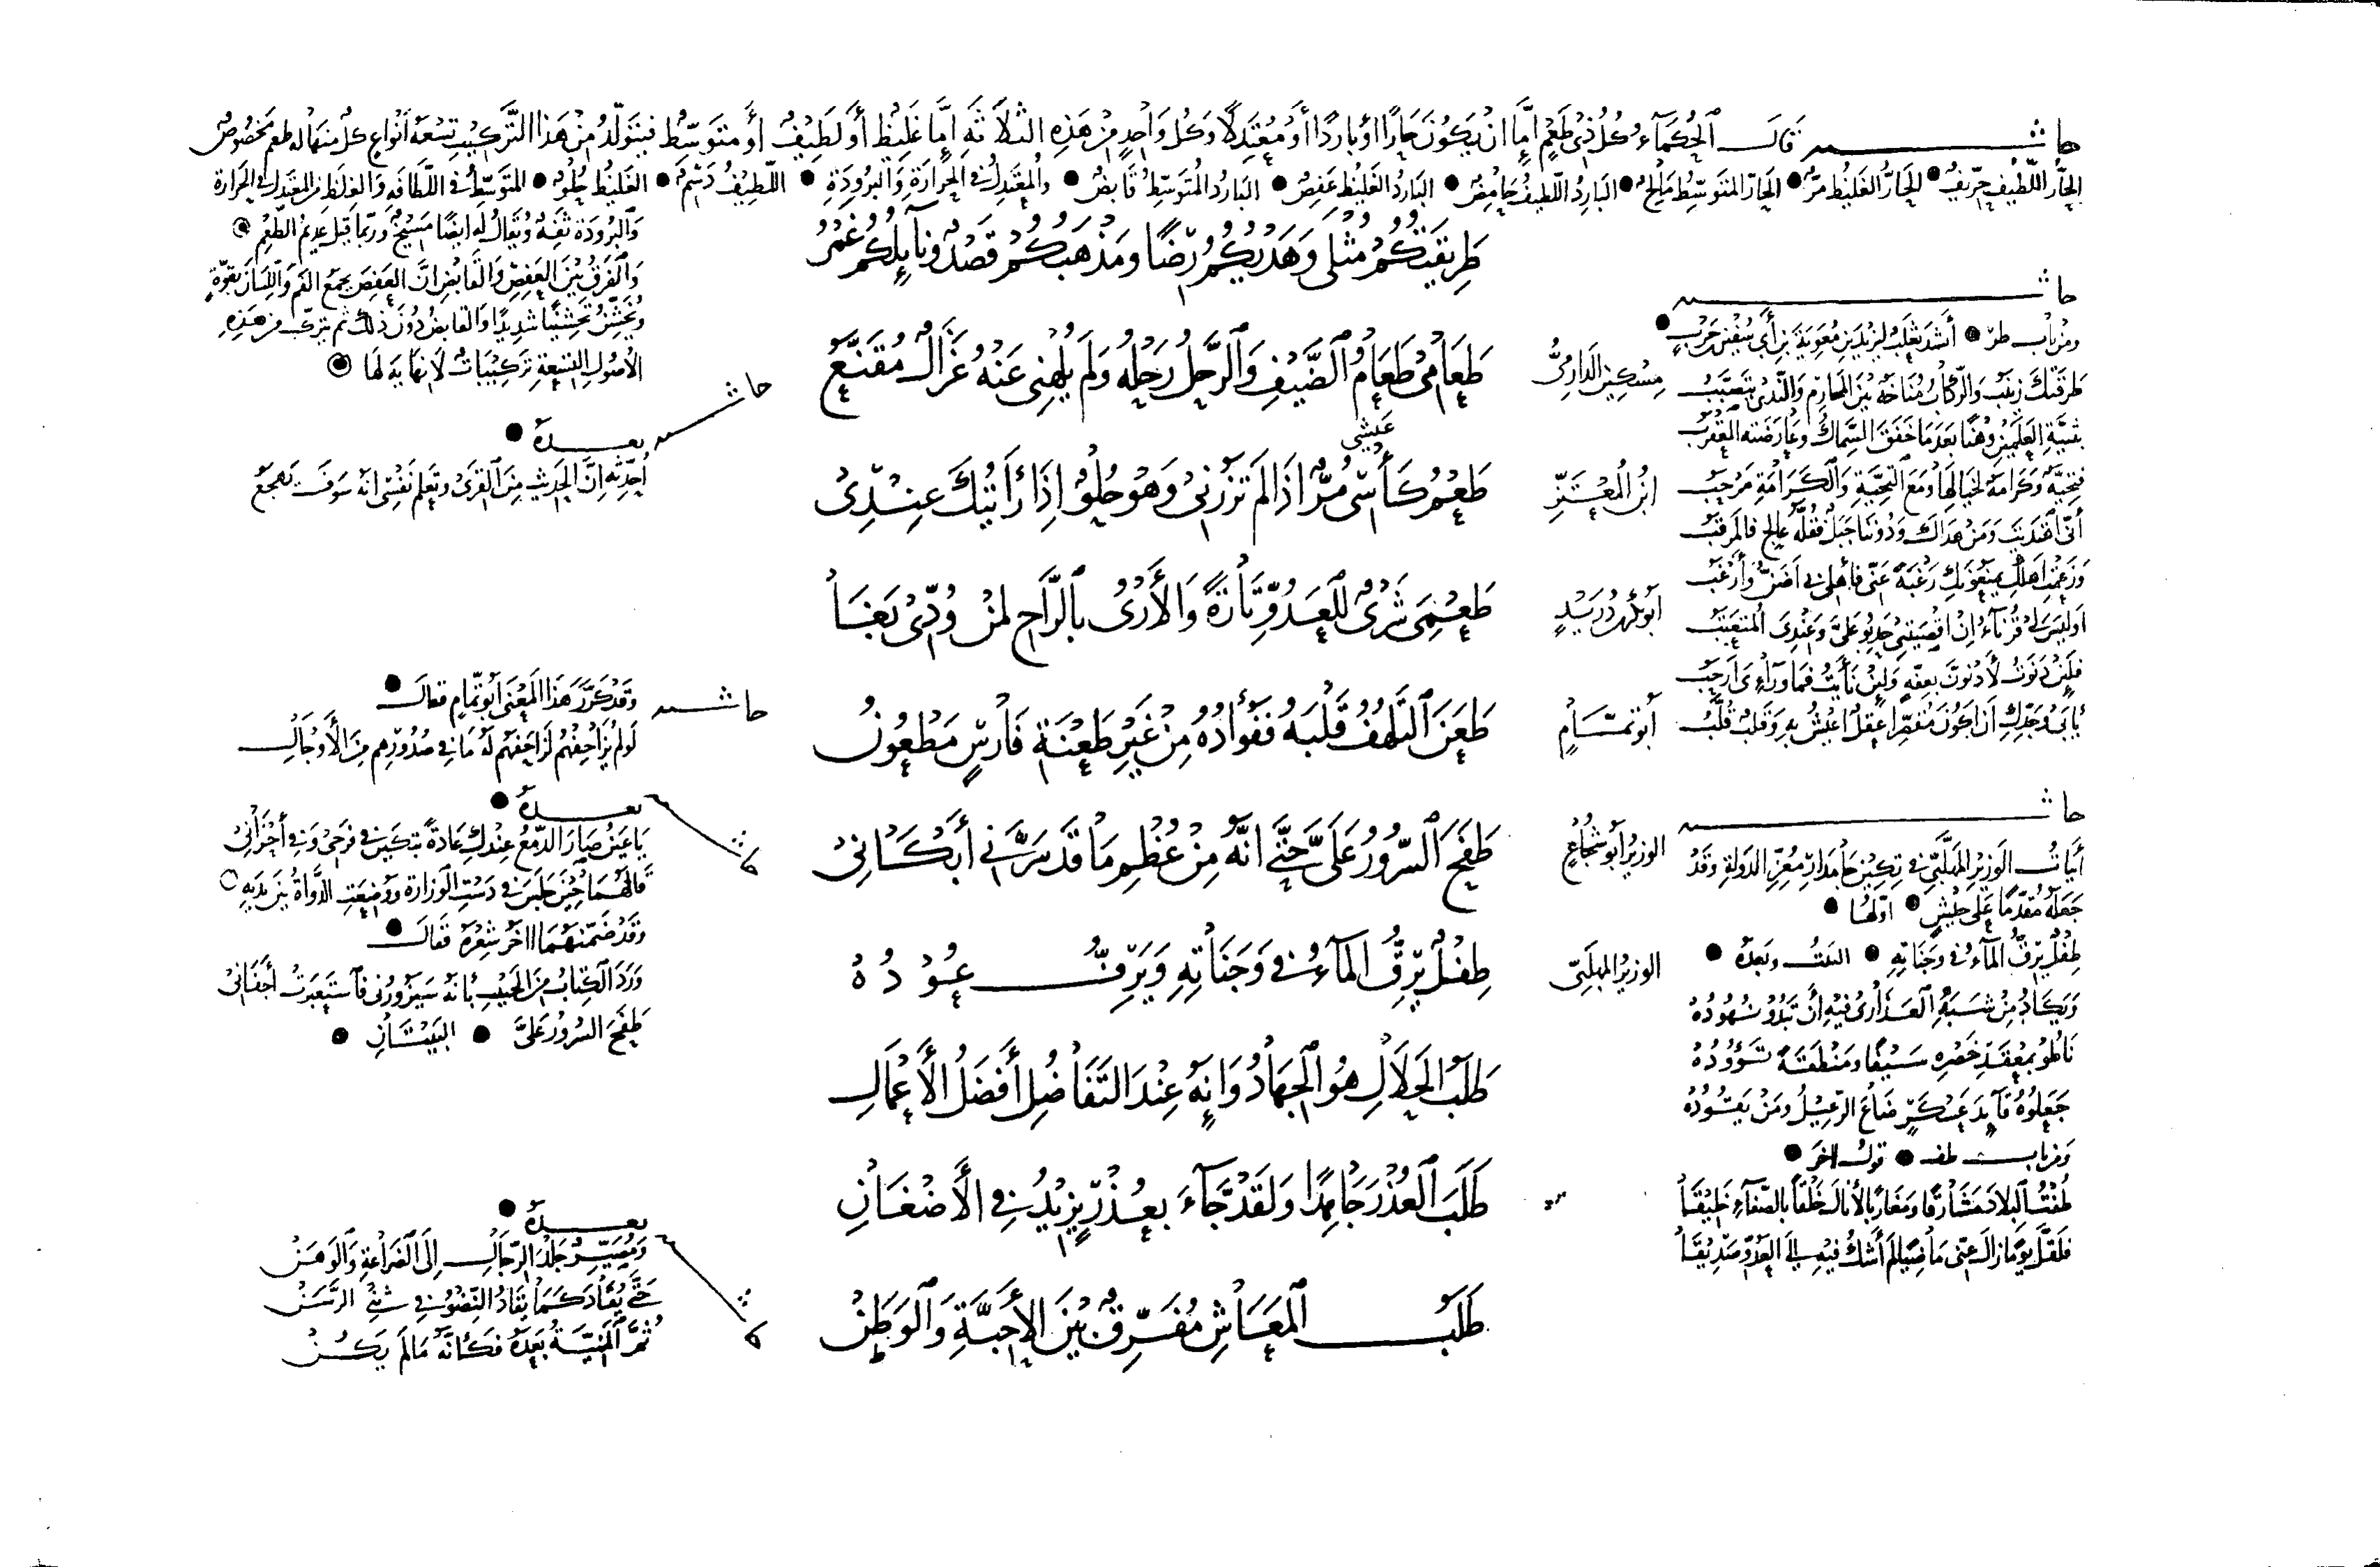 حاشية قَالَ الحُكَمَاءُ كُلُ ذِي طَعْمٍ إِمَّا انْ يَكُونَ حَارًا أو بارِدًا أَوْ مُعْتَدِلًا وَكُل وَاحِدٍ مِنْ هَذِهِ الثلاَثَةِ إِمَّا غَلِيظٌ أَو لَطِيفٌ أَوْ متوَسّطٌ فيتَولّدُ مِنْ هَذا التَّركيبِ تِسْعَةُ أنْواعٍ كلٌّ منهَا له طعمٌ مَخْصُوصٌ
الحَارُّ اللَّطِيفُ حِرِّيفٌ • الحَارُّ الغَلِيْظُ مُرٌّ • الحَارُّ المتوَسِّطُ مَالِحٌ • البَارِدُ اللّطِيفُ حَامِضٌ • البَارِدُ الغَلِيْظُ عَفِصٌ • البَارِدُ المُتَوسِّطُ قَابضٌ • وَالمُعْتَدِلُ في الحَرارَةِ وَالبُرُودَةِ • اللّطِيْفُ دَسِمٌ • الغَلِيْظُ حُلْوٌ • المتَوَسِّطُ في اللَّطَافَةِ وَالغِلَظِ مِنَ المعْتَدِلِ في الحَرَارةِ
وَالبُرُودَةِ تَفِهٌ وَيُقَالُ لَهُ ايضًا مَسِيْخٌ وَرُبّمَا قيلَ عَدِيْمُ الطَّعْمِ
وَالفَرقُ بَيْنَ العَفِصِ وَالقَابِضِ انَّ العَفِصَ يجمَعُ الفَمَ وَاللِّسَانَ بقوّةٍ
وَيُخَشِّنُ تَخشِيْنًا شَدِيدًا وَالقَابضُ دُونَ ذلكَ ثم يتركّب مِنْ هَذِهِ
الأصُولِ التِسْعَةِ تَركِيْبَاتٌ لاَ نِهَايَةَ لَهَا
طَرِيقَتُكُمْ مُثْلَى وَهَدْيُكُمُ رِضًا ومَذْهَبُكُمْ قَصْدٌ ونَايِلُكُمْ غَمْرُ
حاشية
ومن باب طر • أَنشَدَ ثعْلَبٌ لِيَزِيْدَ بنِ مُعَويَةَ بنِ أَبي سُفينَ بن حَرْبٍ •
طَرقَتْكَ زينَبُ وَالرّكابُ مُنَاخَةٌ بَيْنَ المخارِمِ وَالنَّدَى يتَصَبَّبُ
بِثَنِيَّةِ العَلَمَينِ وَهْنًا بَعْدَمَا خَفَقَ السِّمَاكُ وعَارَضَتهُ العَقْرَبُ
فتَحِيَّةٌ وَكَرامَةٌ لخَيَالِهَا وَمَعَ التَّحِيَّةِ وَالكَرَامَةِ مَرْحَبُ
أَنَّى اهْتَدَيتَ وَمَنْ هَدَاكَ وَدُونَنَا جَبَلٌ فَقُلَّةُ عَالِجٍ فَالمَرقَبُ
وَزَعَمْتِ اهْلَكِ يمنَعُونَكِ رَغْبَةً عَنّي فأَهْلي بي اَضَنُّ وَأَرْغَبُ
اَوليْسَ لي قُرَناءُ إِنْ اقصَيتنِي حَدِبُوا عَليَّ وَعندِيَ المُتَعَتَّبُ
فلَئِنْ دَنَوْتُ لأَدْنُوَنَّ بعِفّةٍ وَلَئِنْ نَأَيتُ فَمَا وَرَاءِي اَرحَبُ
يَأبى وَجَدِّكِ اَنْ أكُونَ مُقَصِّرًا عَقلٌ اَعِيْشُ بِهِ وَقَلبٌ قُلَّبُ
مِسكينُ الدارميُّ
طَعَامِي طَعَامُ الضَّيْفِ وَالرَّحلُ رَحْلُه وَلَم يُلْهِنِي عَنْهُ غَزَالٌ مُقَنَّعُ
حاشية
بعدهُ •
أُحَدّثهُ إِنَّ الحَدِيثَ مِنَ القِرَى وَتَعلَم نَفْسِي انّهُ سَوفَ يَهجَعُ
ابنُ المُعْتَزِّ
عَيشي
طَعْمُ كَأسِي مُرٌّ اذَا لَم تَزُرْنِي وَهْوَ حُلْوٌ إِذَا رَأَيتُكَ عِنْدِي
أبُو بَكْر دُرَيْدٍ
طَعْمِيَ شَرْىٌ للعَدُوِّ تَارَةً وَالأَرْيُ بالرَّاحِ لمَنْ وُدّي بَغَا
أبُو تمّامٍ
طَعَنَ التَّلَهُّفُ قَلْبَهُ فَفُؤَادُهُ مِنْ غَيْرِ طَعْنَةِ فَارِسٍ مَطْعُونُ
حاشية
وَقَدْ كَرَّرَ هَذا المَعْنَى أبُو تمّامٍ فقَالَ •
لَو لَم يُزَاحِفْهُمُ لَزَاحَفَهُم لَهُ مَا في صُدُوْرِهِم مِنَ الأَوْجَالِ
الوزيرُ أبُو شُجَاعٍ
طَفَحَ السّرُورُ عَلَىَّ حَتَّى انَّهُ مِنْ عُظْمِ مَا قَدْ سَرَّنِي أَبكَانِي
بعدهُ •
يَا عَيْنُ صَارَ الدّمْعُ عِنْدكِ عَادةً تَبكينَ في فرَحي وَفي أَحْزَانِي
قَالَهُمَا حِيْنَ جَلَسَ في دَسْتِ الوَزَارَةِ وَوُضِعَتِ الدَّوَاةُ بَينَ يدَيهِ
وَقَدْ ضَمَّنَهُمَا اخَرُ شِعْرَهُ فَقَالَ •
وَرَدَ الكِتَابُ مِنَ الحَبِيبِ بأنّهُ سَيَزُورُني فَاستَعبَرَتْ أَجفَانِي
طَفَحَ السّرُورُ عَلىَّ • البَيْتَانِ •
حاشية
أبيَاتُ الوَزيرِ المُهَلَّبِي في تكينَ جَامَدَارِ مُعِزِّ الدَولةِ وقَدْ
جَعَلَهُ مُقَدَّمًا عَلى جَيْشٍ • اوّلهَا •
طِفْلٌ يَرِقُّ المآءُ في وَجَنَاتِهِ • البَيْتُ وبَعدَهُ •
وَيَكَادُ مِنْ شَبَهِ العَذَارَى فيْهِ أَنْ تَبْدُو نُهُودُهُ
نَاطُوا بمَعْقِدِ خَصْرِهِ سَيْفًا ومَنْطَقَةً تَؤُودُهُ
جَعَلُوهُ قَائِدَ عَسْكَرٍ ضَاعَ الرَّعِيْلُ ومَنْ يَقُودُهُ
الوزيرُ المهلّبي
طِفْلٌ يَرِقُّ المآءُ في وَجَنَاتِهِ وَيَرِفُّ عُوْدُهُ
طَلَبُ الحَلاَلِ هُوَ الجِهَادُ وَانّهُ عِنْدَ التَّفَاضُلِ أَفضَلُ الأَعْمَالِ
وَمن باب طف • قولُ اخَر •
طُفْتُ البِلاَدَ مَشَارقًا ومَغاربًا لأَنَالَ خُلْقًا بالصَّفَاءِ خَلِيْقَا
طَلَبَ العُذْرَ جَاهِدًا وَلَقَدْ جَآءَ بعُذْرٍ يَزِيْدُ في الأَضْغَانِ
طَلَبُ المَعَاشِ مُفَرِّقٌ بَيْنَ الأَحِبَّةِ وَالوَطَنْ
بعدهُ •
وَمُصَيِّرٌ جَلْدَ الرِّجَالِ إِلَى الضَّرَاعَةِ وَالوَهَنْ
حَتَّى يُقَادَ كَمَا يُقَادُ النِّضْوُ في ثِنْيِ الرَّسَنْ
ثُمَّ المَنِيَّةُ بَعْدَهُ فَكَأنَّهُ مَا لَم يَكُنْ